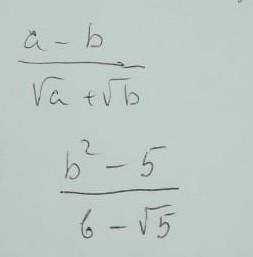 a - b
√a + √b
b² - 5
b - √5